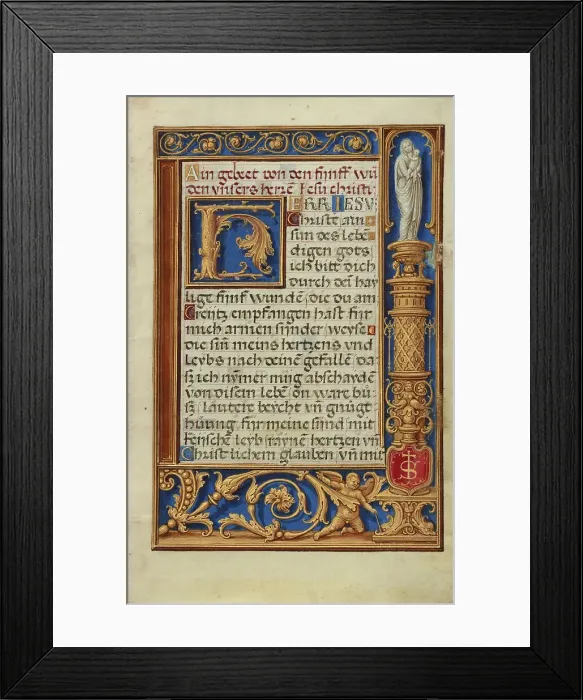 Ain gebeet von den fünff wu
den vnsers herrē Jesu christi·
HERR IESV
Christe ain
sun des lebē
digen gots
ich bitt dich
durch dei hay
lige fünf wundē, die du am
Creütz empfangen hast für
mich armen sünder weyse
die sin̄ meins hertzens vnd
Leybs nach deinē gefallē da
sz ich nȳmer mug abschaydē
von disem lebē on ware bu
sz lautere beycht vn̄ gnügt
hüung für meine sünd mit
kenschē leyb raynē hertzen vn̄
Christlichem glauben vn̄ mit